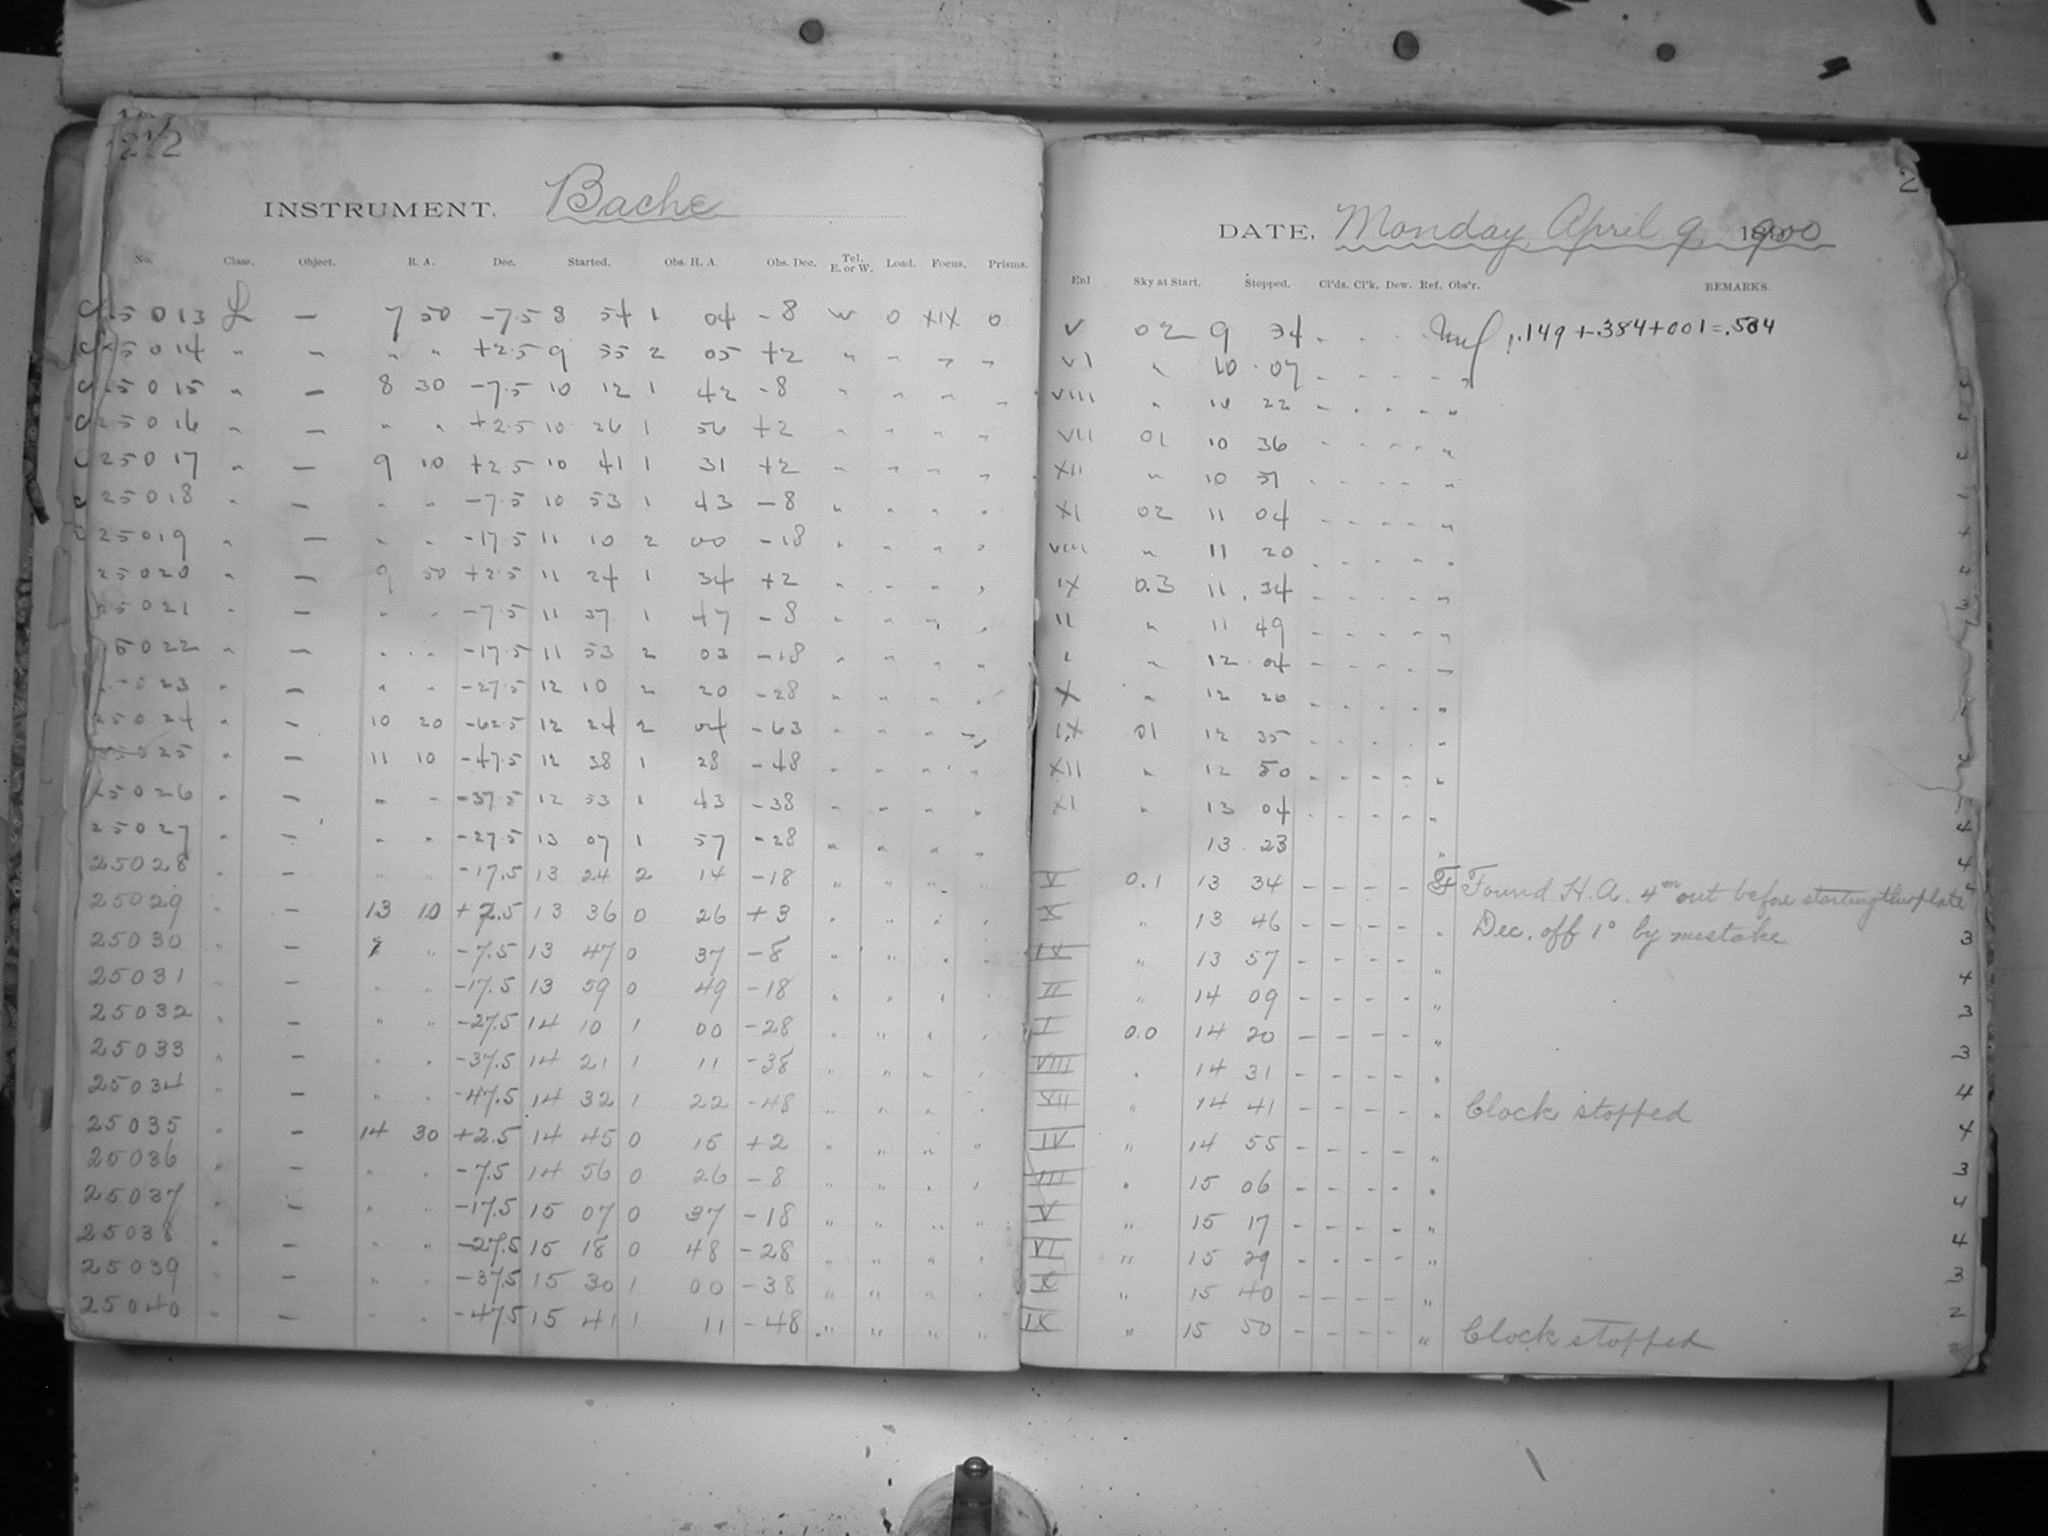 212
INSTRUMENT, Bache
No. Class. Object. R. A. Dec. Started. Obs. H. A. Obs. Dec. Tel. E. or W. Load. Focus. Prisms.
25013 L — 7 50 -7.5 8 54 1 04 -8 W 0 XIX 0
25014 " — " " +2.5 9 55 2 05 +2 " " " "
25015 " — 8 30 -7.5 10 12 1 42 -8 " " " "
25016 " — " " +2.5 10 26 1 56 +2 " " " "
25017 " — 9 10 +2.5 10 41 1 31 +2 " " " "
25018 " — " " -7.5 10 53 1 43 -8 " " " "
25019 " — " " -17.5 11 10 2 00 -18 " " " "
25020 " — 9 50 +2.5 11 24 1 34 +2 " " " "
25021 " — " " -7.5 11 37 1 47 -8 " " " "
25022 " — " " -17.5 11 53 2 03 -18 " " " "
25023 " — " " -27.5 12 10 2 20 -28 " " " "
25024 " — 10 20 -62.5 12 24 2 04 -63 " " " "
25025 " — 11 10 -47.5 12 38 1 28 -48 " " " "
25026 " — " " -37.5 12 53 1 43 -38 " " " "
25027 " — " " -27.5 13 07 1 57 -28 " " " "
25028 " — " " -17.5 13 24 2 14 -18 " " " "
25029 " — 13 10 +2.5 13 36 0 26 +3 " " " "
25030 " — " " -7.5 13 47 0 37 -8 " " " "
25031 " — " " -17.5 13 59 0 49 -18 " " " "
25032 " — " " -27.5 14 10 1 00 -28 " " " "
25033 " — " " -37.5 14 21 1 11 -38 " " " "
25034 " — " " -47.5 14 32 1 22 -48 " " " "
25035 " — 14 30 +2.5 14 45 0 15 +2 " " " "
25036 " — " " -7.5 14 56 0 26 -8 " " " "
25037 " — " " -17.5 15 07 0 37 -18 " " " "
25038 " — " " -27.5 15 18 0 48 -28 " " " "
25039 " — " " -37.5 15 30 1 00 -38 " " " "
25040 " — " " -47.5 15 41 1 11 -48 " " " "
2
DATE, Monday, April 9, 1900
Enl Sky at Start. Stopped. Cl'ds. Cl'k. Dew. Ref. Obs'r. REMARKS.
V 02 9 34 - - - - .149+.384+001=.534
VI " 10 07 - - - - "
VIII " 10 22 - - - - "
VII 01 10 36 - - - - "
XII " 10 51 - - - - "
XI 02 11 04 - - - - "
VIII " 11 20 - - - - "
IX 0.3 11 34 - - - - "
II " 11 49 - - - - "
I " 12 04 - - - - "
X " 12 20 - - - - "
IX 01 12 35 - - - - "
XII " 12 50 - - - - "
XI " 13 04 - - - - "
13 23 "
V 0.1 13 34 - - - - Found H. A. 4m out before starting this plate
X " 13 46 - - - - " Dec. off 1° by mistake
IX " 13 57 - - - - "
II " 14 09 - - - - "
I 0.0 14 20 - - - - "
VIII " 14 31 - - - - "
XII " 14 41 - - - - " Clock stopped
IV " 14 55 - - - - "
III " 15 06 - - - - "
V " 15 17 - - - - "
VI " 15 29 - - - - "
X " 15 40 - - - - "
IX " 15 50 - - - - " Clock stopped